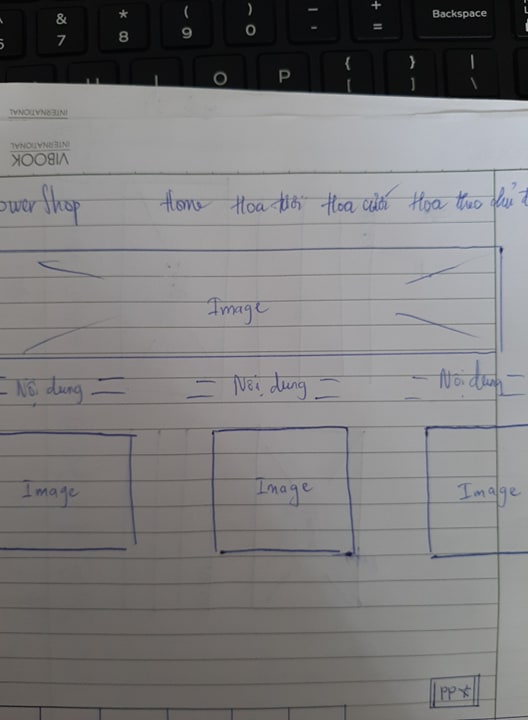 & * ( ) - +
7 8 9 0 - = Backspace
{ } |
O P [ ] \
INTERNATIONAL
INTERNATIONAL
VIBOOK
ower Shop Home Hoa tươi Hoa cưới Hoa theo chủ
Image
= Nội dung = = Nội dung = = Nội dung =
Image Image Image
PP